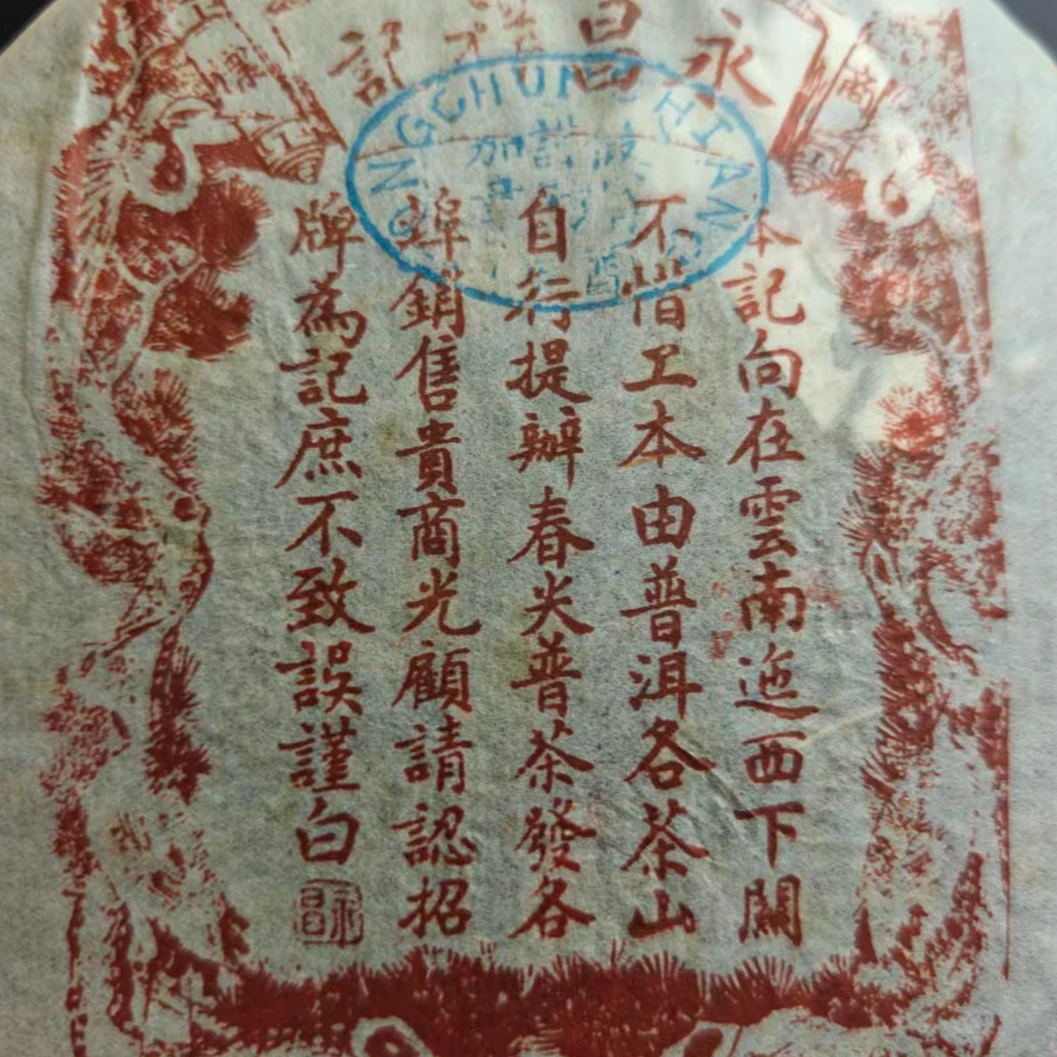 永昌祥記
商
標
本記向在雲南迤西下關
不惜工本由普洱各茶山
自行提辦春尖普茶發各
埠銷售貴商光顧請認招
牌為記庶不致誤謹白
永昌
NGCHUN HIANG